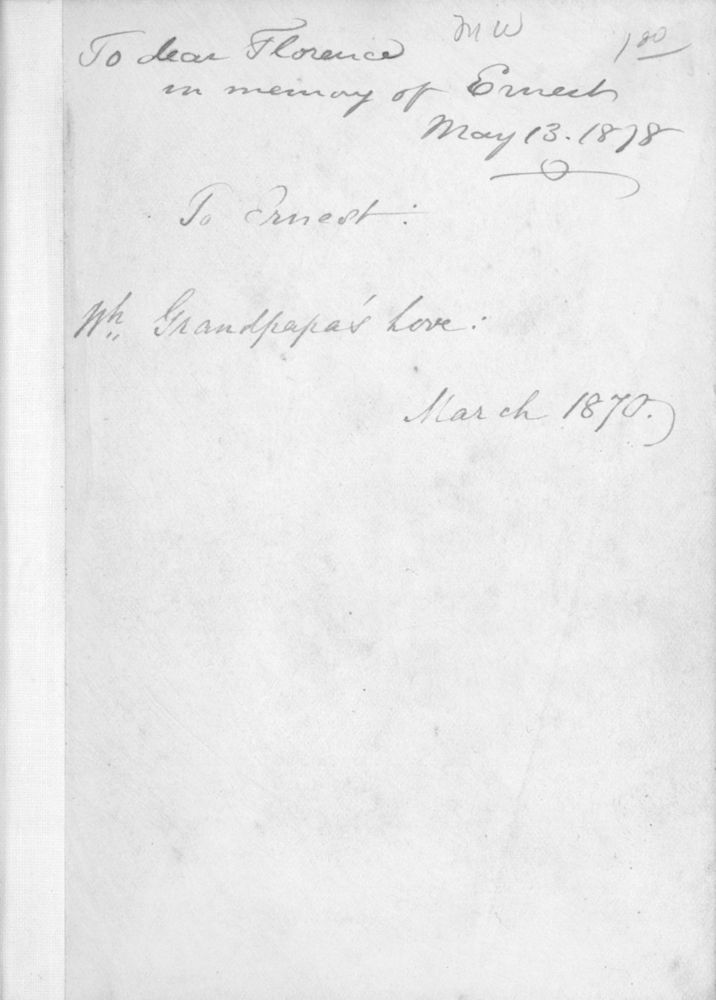 MW
1 80
To dear Florence
in memory of Ernest
May 13. 1878
To Ernest:
Wh Grandpapa's Love:
March 1870.